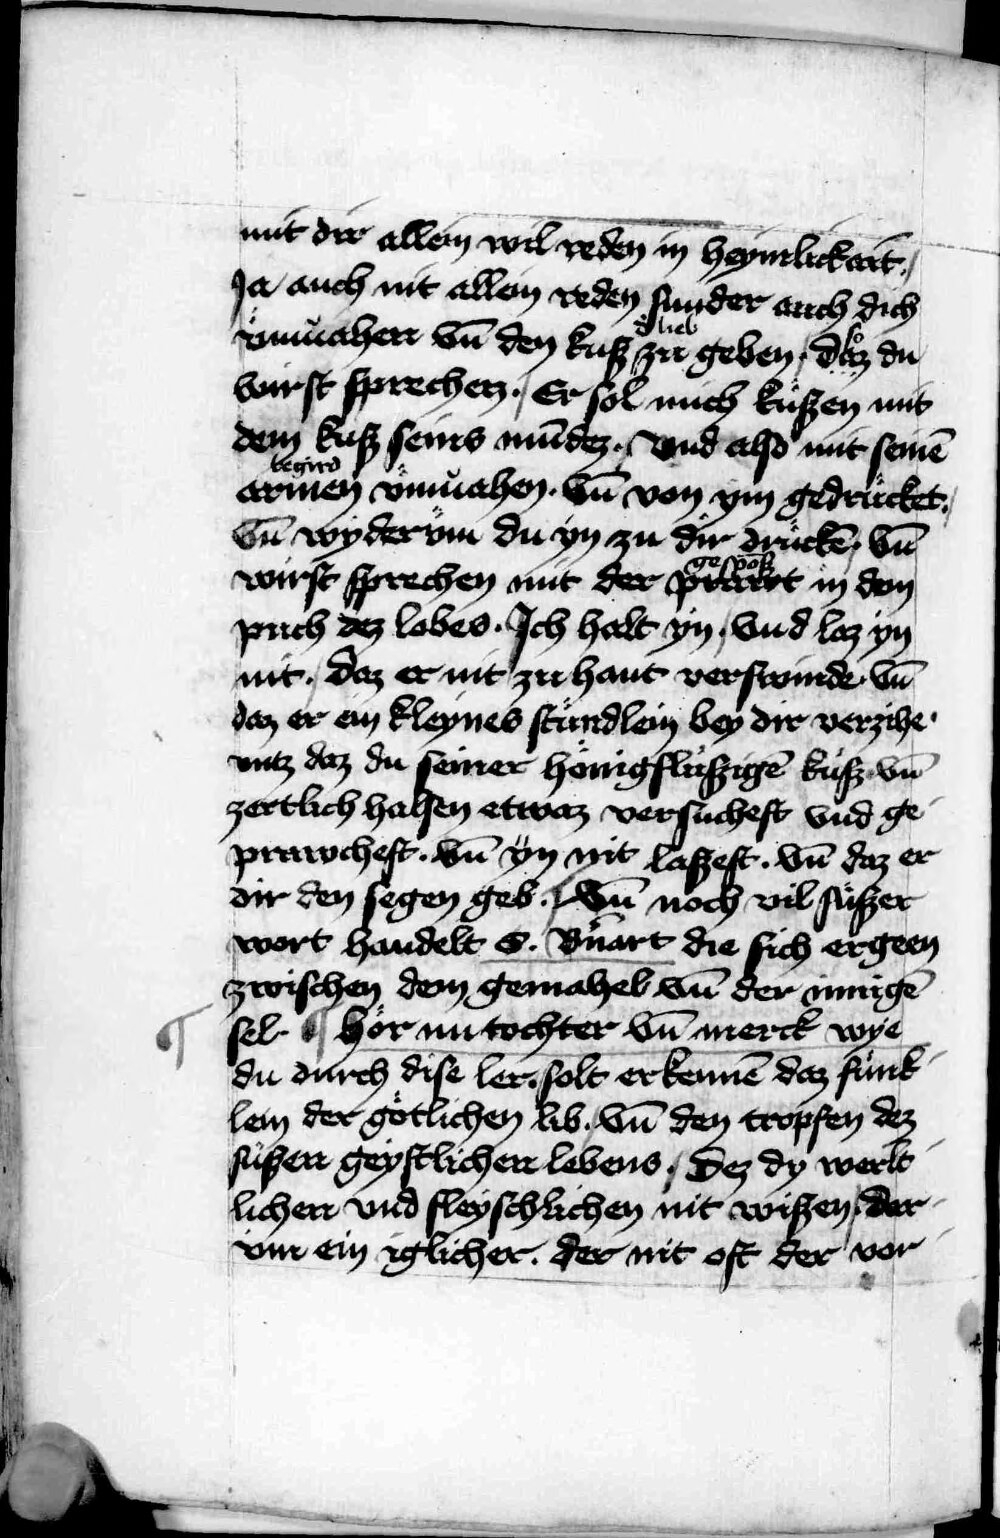 mit dir allein wil reden in heymlickait.
Ja auch nit allein reden sunder auch dich
vmuahen vn̄ den kuß zu geben. daz du
d lieb
wirst sprechen. Er sol mich küßen mit
dem kuß seins mu̅dez. Vnd also mit seine̅
begird
armen vmuahen. vn̄ von ym gedrücket.
vn̄ wyderüm du yn zu dir drücke̅. vn̄
gespo̅ß
wirst sprechen mit der prawt in dem
puch dez lobes. Ich halt yn, vnd laz yn
nit. daz er nit zu hant verswinde vn̄
daz er ein kleynes stündlein bey dir verzihe.
vntz daz du seiner hönigflüßige̅ küß vn̄
zertlich halsen etwaz versuchest vnd ge
prawchest. vn̄ yn nit laßest. vn̄ daz er
dir den segen geb. Vn̄ noch vil süßer
wort handelt S. B̅nart die sich ergeen
zwischen dem gemahel vn̄ der innige̅
sel ¶ Hör nu tochter vn̄ merck wye
du durch dise ler solt erkenne̅ daz fünk
lein der götlichen lib. vn̄ den tropfen dez
süßen geystlichen lebens. Dez dy werlt
lichen vnd fleyschlichen nit wißen, dar
vm ein iglicher. der nit oft der vor